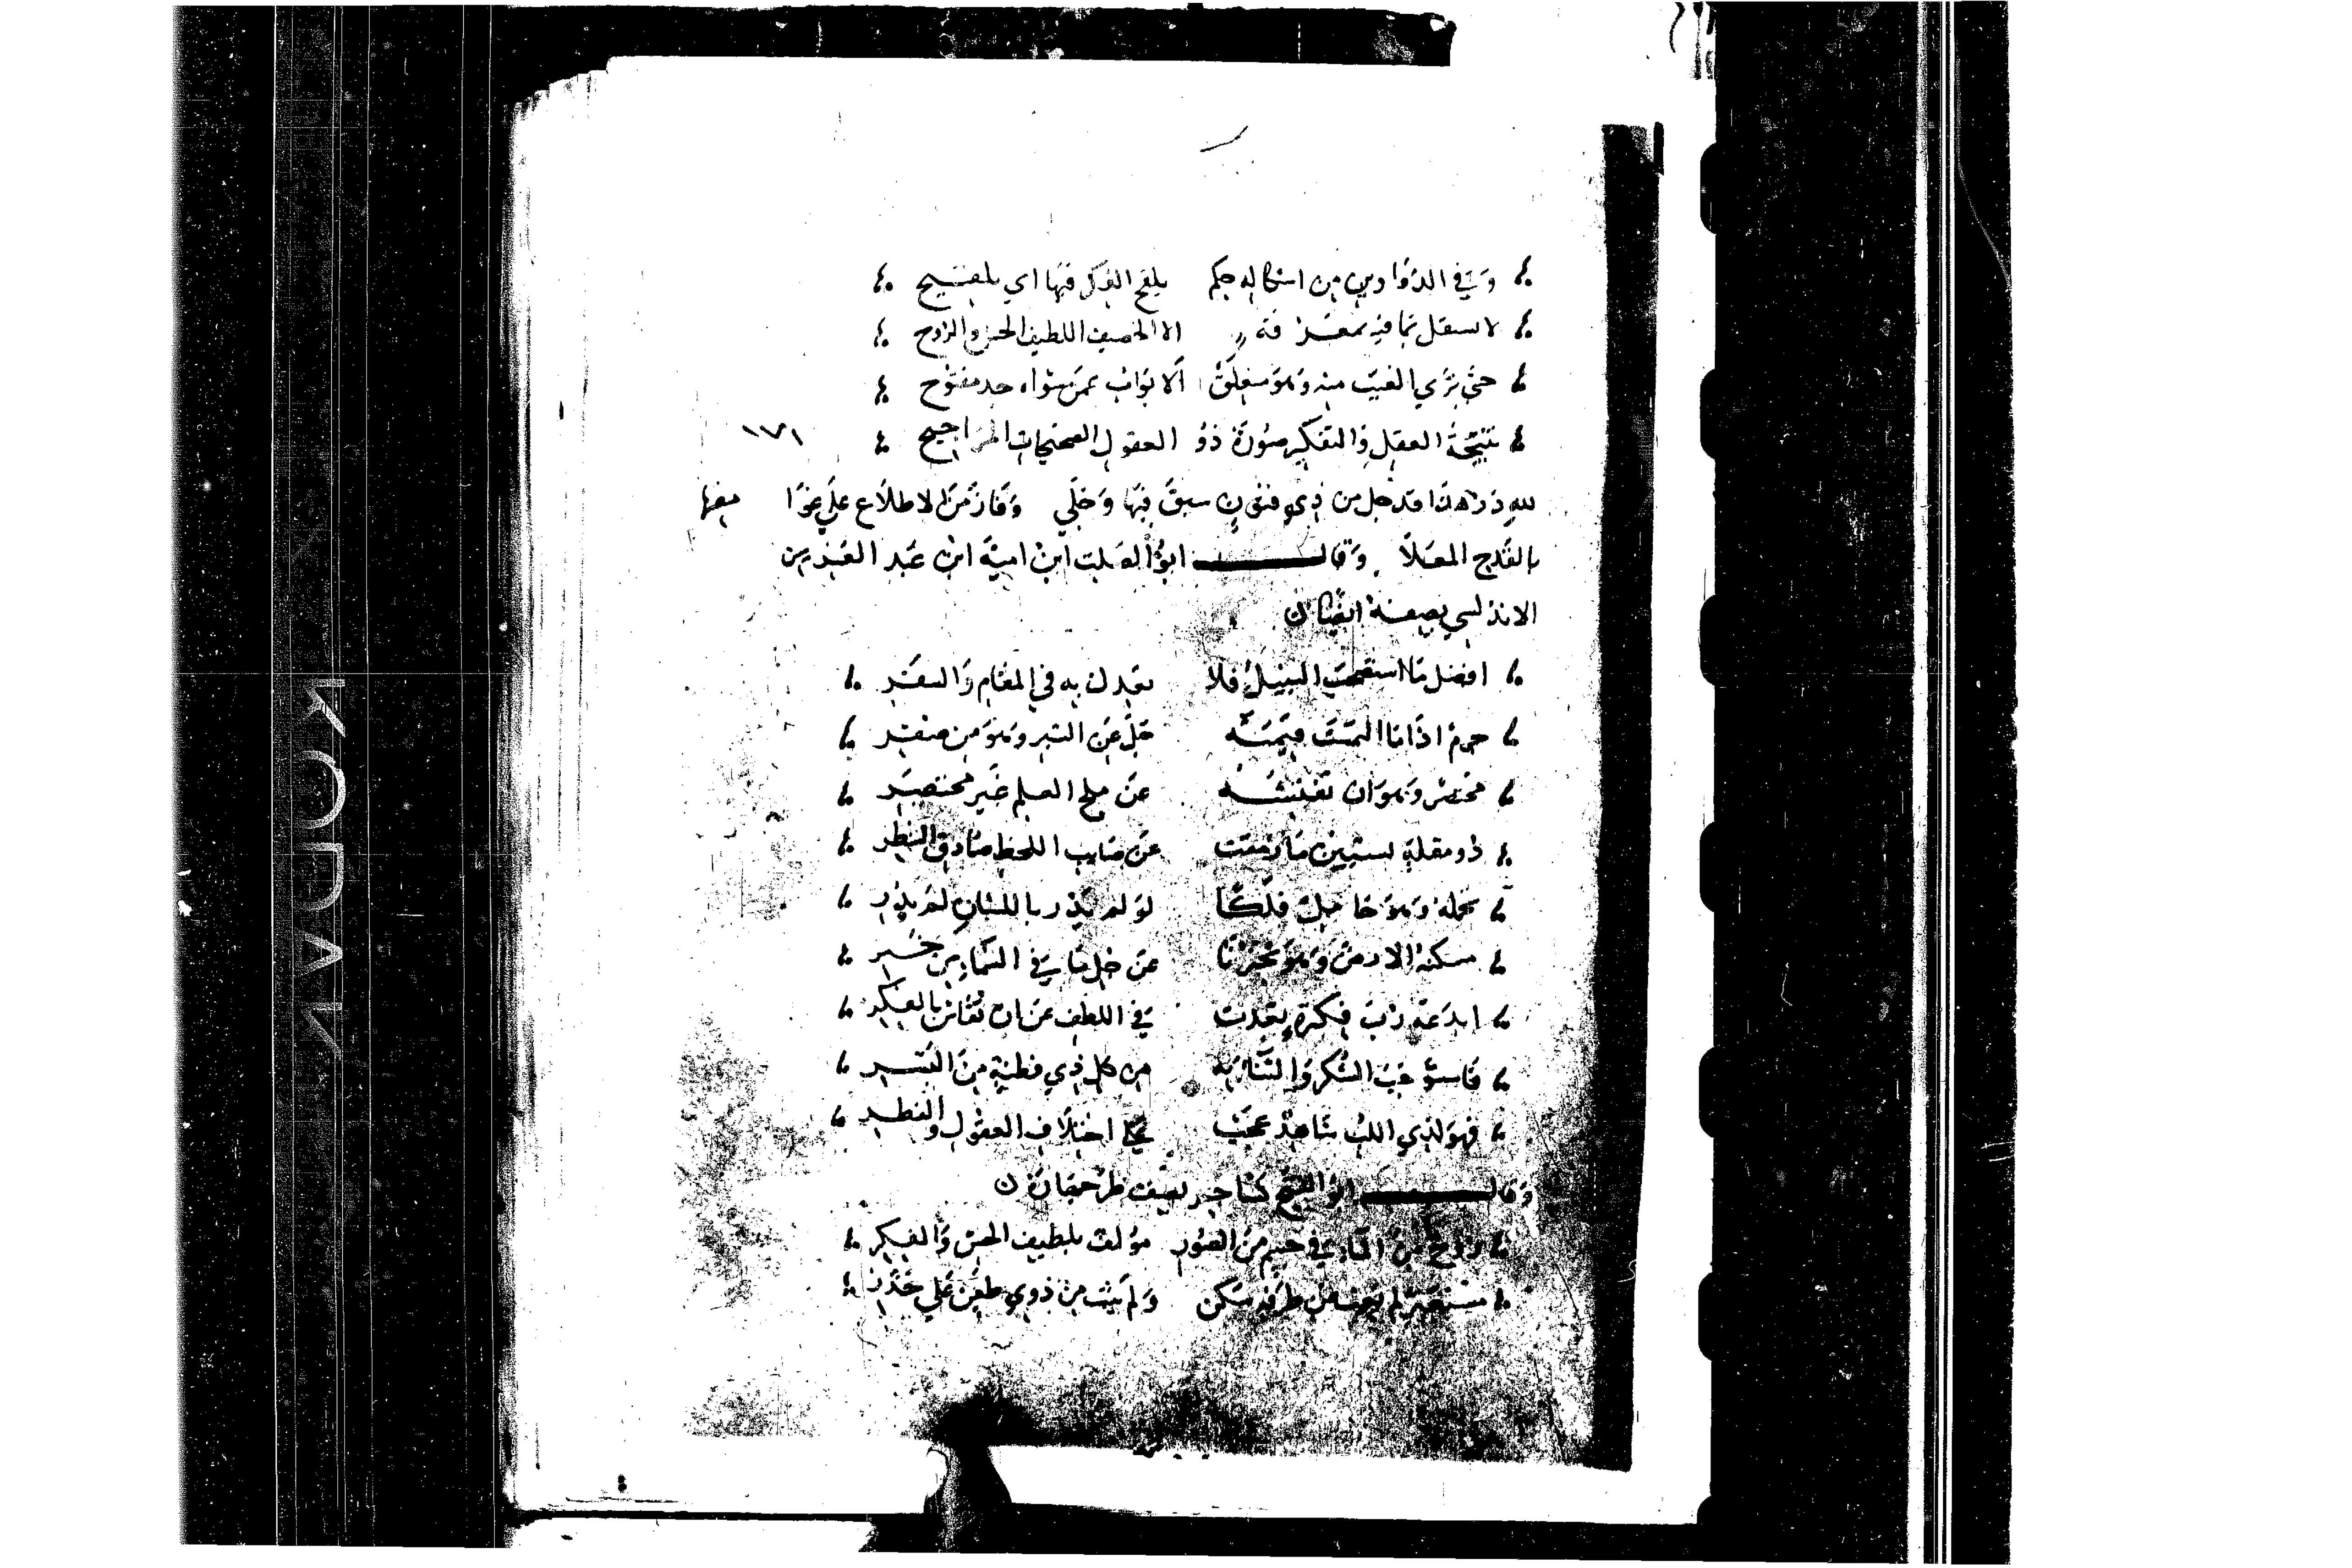 وَفي الدوَاوين من اشكاله حكم يلقح الفكر فيها اي تلقيح
لا يستقل بما فيه بمعرفة الا الحصيف اللطيف الحس والروح
حتى ترى الغيب منه وَهوَ منغلق الابوَاب عمن سواه جد مفتوح
نتيجة العقل وَالتفكير صورة ذوُ العقول الصحيحات المراجيح
١٧١
لله در هذا قد جل من ذي فنون سبق فيها وَجَلّي وَفاز مَن الاطلاَع علي غوَا مضها
بالقدح المعلا وَقال ابوُ الصلت ابن امية ابن عبد العزيز
الاندلسي يصفه ايضًا ن
افضل مَا استصحب النبيل فلا تعدل به في المقام وَالسفر
جرم اذا مَا التمست قيمته جل عَن التبر وَهوَ من صفر
مختصر وَهوَ ان تفتشه عن ملح العلم غير مختصر
ذو مقلة يستبين مَا رمقت عن صايب اللحظ صَادق النظر
تحمله وَهوَ حامل فلكًا لو لم يدر بالبنان لم يدر
مسكنه الارض وَهوَ يخبرنا عن جل مَا في السماء من خبر
ابدعه رب فكرة بعدت في اللطف عن ان تقاس بالفكر
فاستوجب الشكر وَالثناء به من كل ذي فطنة من البشر
فهوَ لذي اللب شاهد عجب علي اختلاَف العقول وَالفطر
وَقال ابوُ الفتح كشاجر يصف طرجهارة ن
روح من الماء في جسم من الصور مؤلف بلطيف الحس وَالفكر
مستعبر لم يغب عن طرفه سكن وَلم يبت من ذوي ظعن علي حذر
KODAK